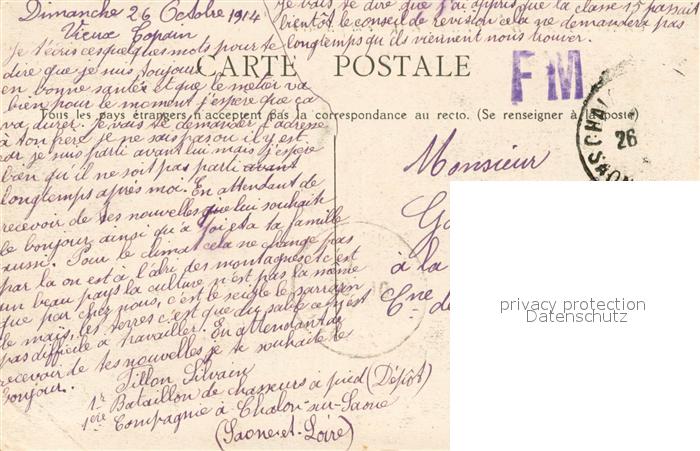 Dimanche 26 Octobre 1914
Vieux Copain
Je t'écris ces quelques mots pour te
dire que je suis toujours
en bonne santé et que le métier va
bien pour le moment j'espère que ça
va durer. Je vais te demander l'adresse
à ton frère je ne sais pas ou il y est
car je suis parti avant lui mais j'espère
bien qu'il ne soit pas parti avant
longtemps après moi. En attendant de
recevoir de tes nouvelles que lui souhaite
le bonjour ainsi qu'à toi et a ta famille
aussi. Pour le climat cela ne change pas
par la on est à l'abri des montagnes c'est
un beau pays la culture n'est pas la même
que par chez nous, c'est le seigle le sarrasin
le maïs, les terres c'est que du sable ce n'est
pas difficile à travailler. En attendant de
recevoir de tes nouvelles je te souhaite le
bonjour.
Tillon Silvain
1er Bataillon de chasseurs à pied (Dépôt)
1ère Compagnie à Chalon-sur-Saône
(Saône-et-Loire)
Je vais te dire que j'ai appris que la classe 15 passait
bientôt le conseil de revision cela ne demandera pas
longtemps qu'ils viennent nous trouver.
CARTE POSTALE
Tous les pays étrangers n'acceptent pas la correspondance au recto. (Se renseigner à la poste)
FM
CHAL
26
SAON
Monsieur
Go
à la
Cne de
privacy protection
Datenschutz